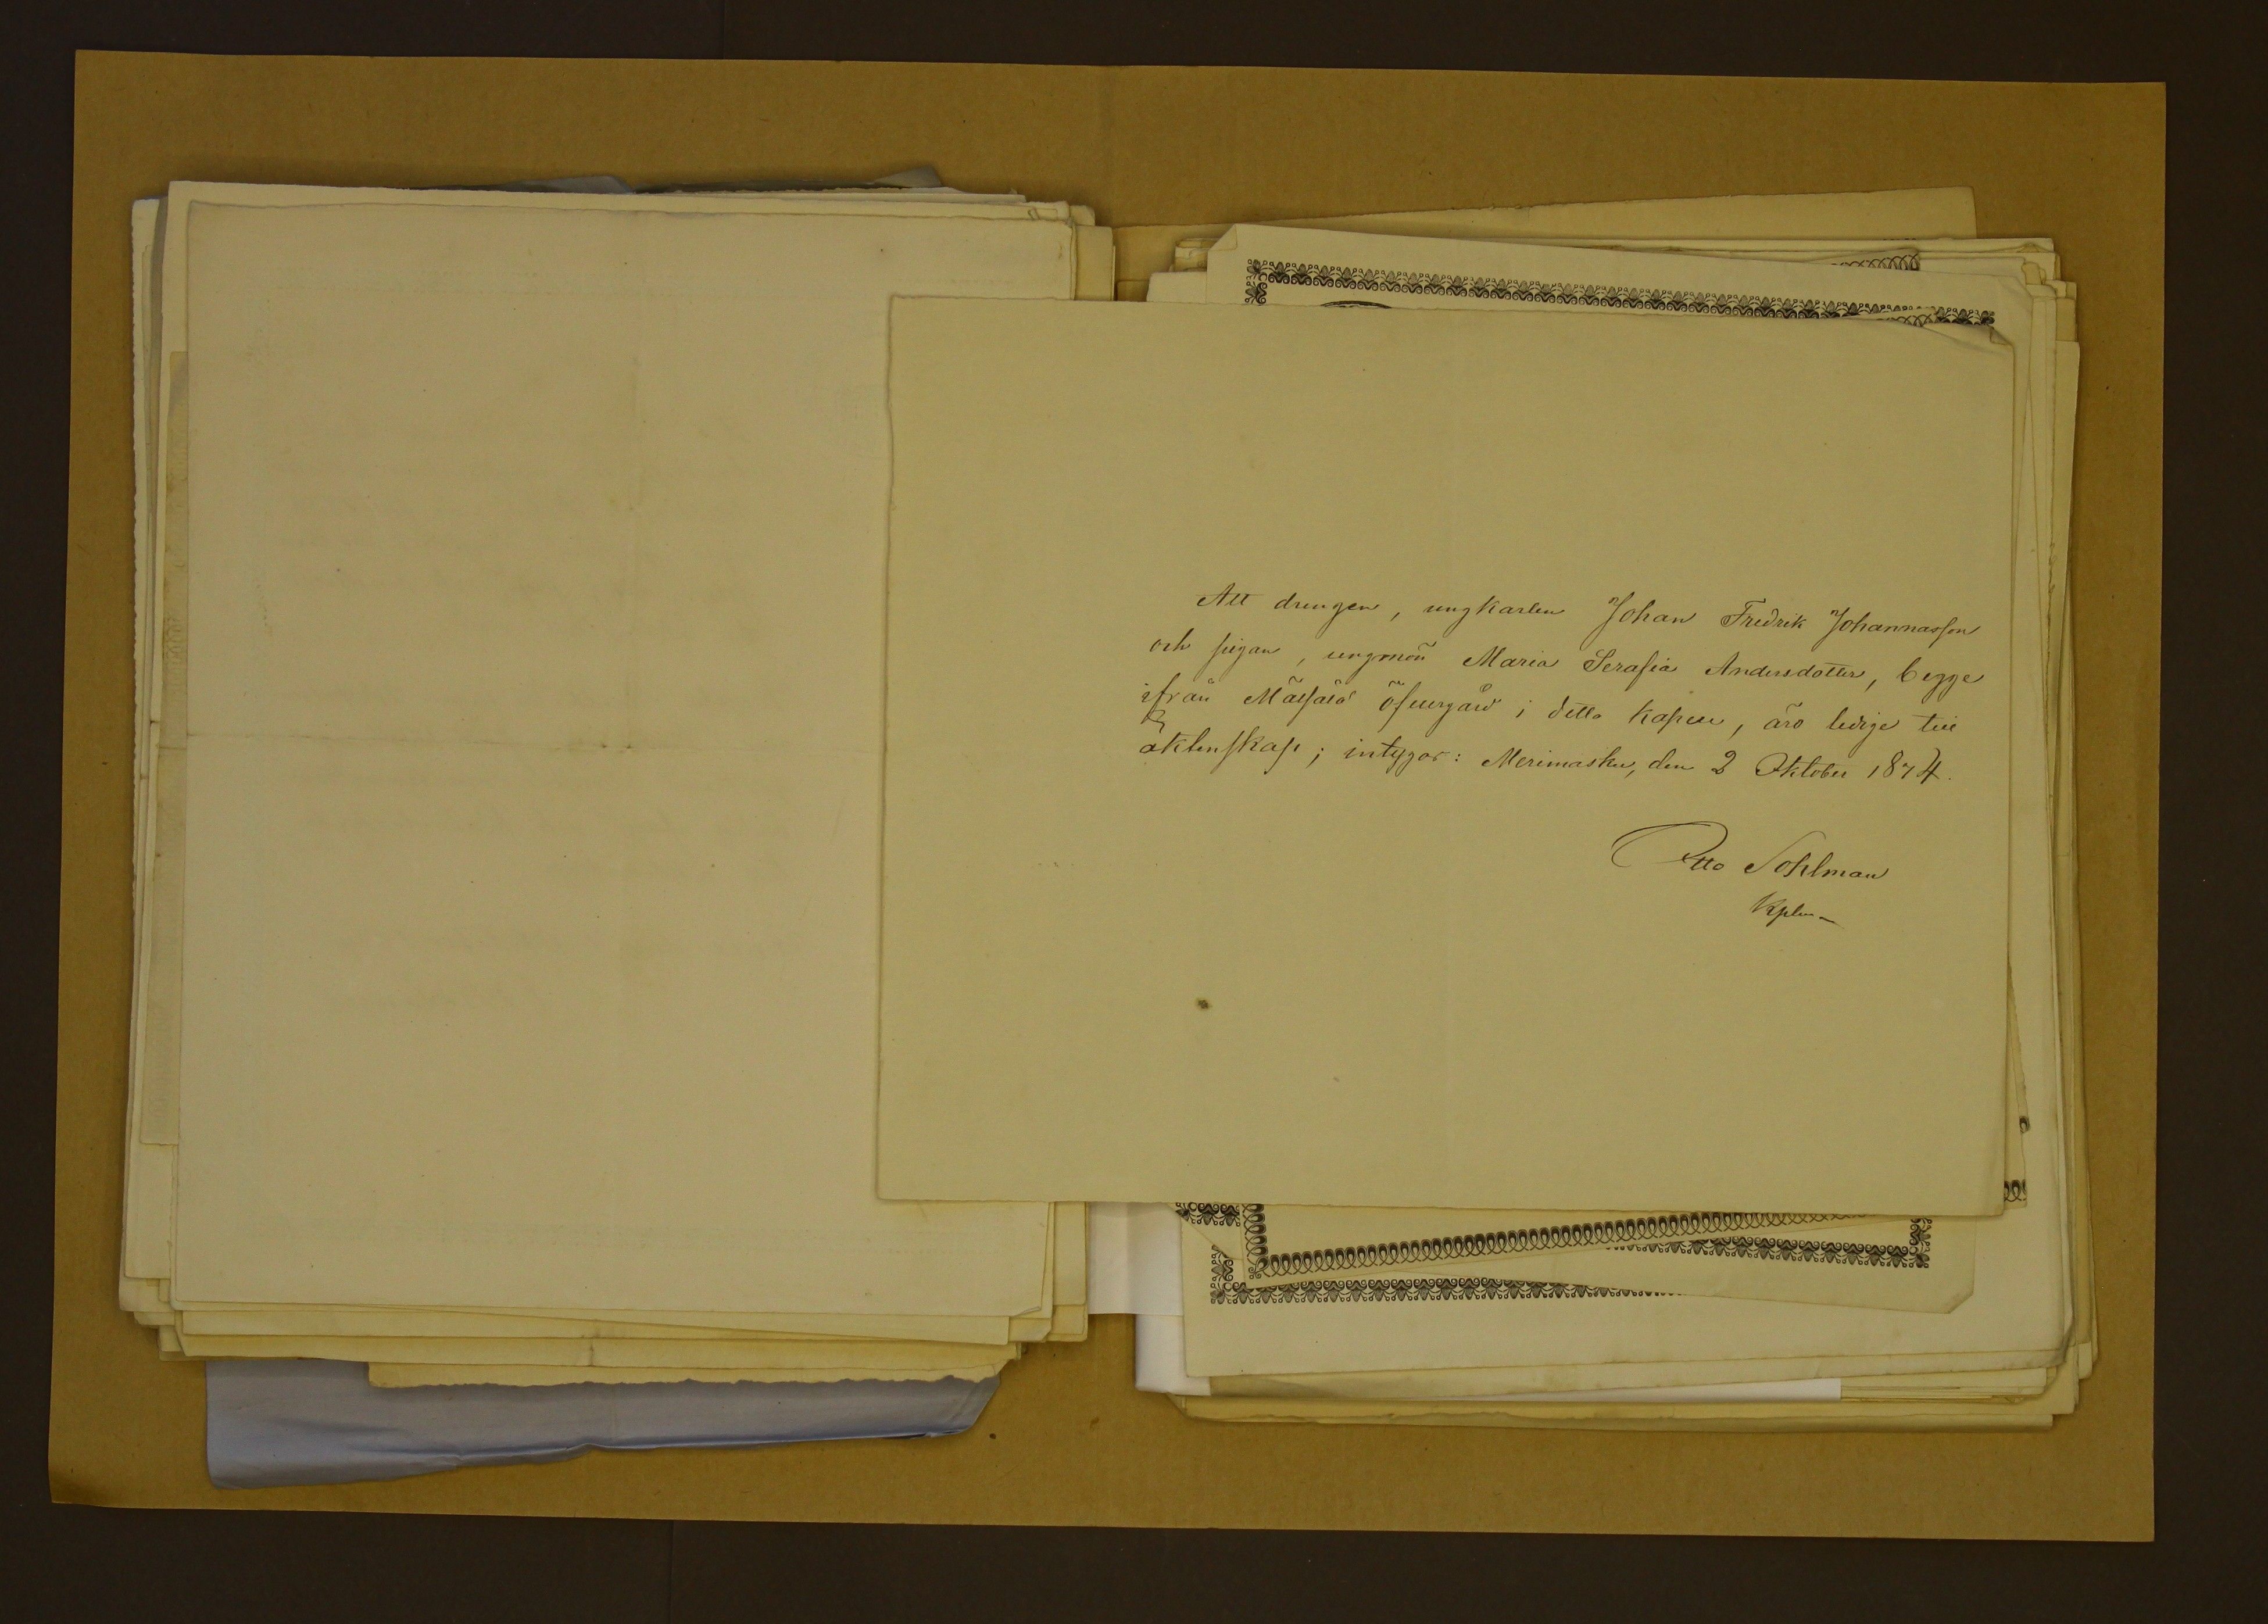 Att drengen, ungkarlen Johan Fredrik Johannasson
och pigan, ungmön Maria Serafia Andersdotter, begge
ifrån öfvergård i detta kapell, äro ledige till
äktenskap; intygar: Merimasku, den 2 Oktober 1874.
Otto Sohlman
Kplan